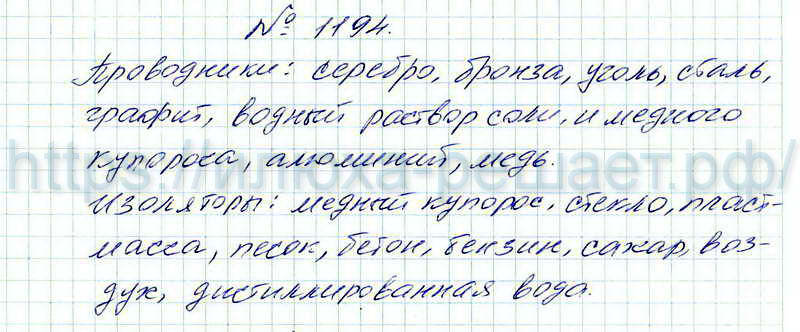 № 1194.
Проводники: серебро, бронза, уголь, сталь,
графит, водный раствор соли, и медного
купороса, алюминий, медь.
Изоляторы: медный купорос, стекло, пласт-
масса, песок, бетон, бензин, сахар, воз-
дух, дистиллированная вода.